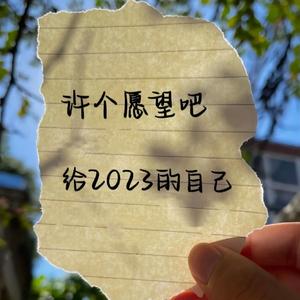 许个愿望吧
给2023的自己